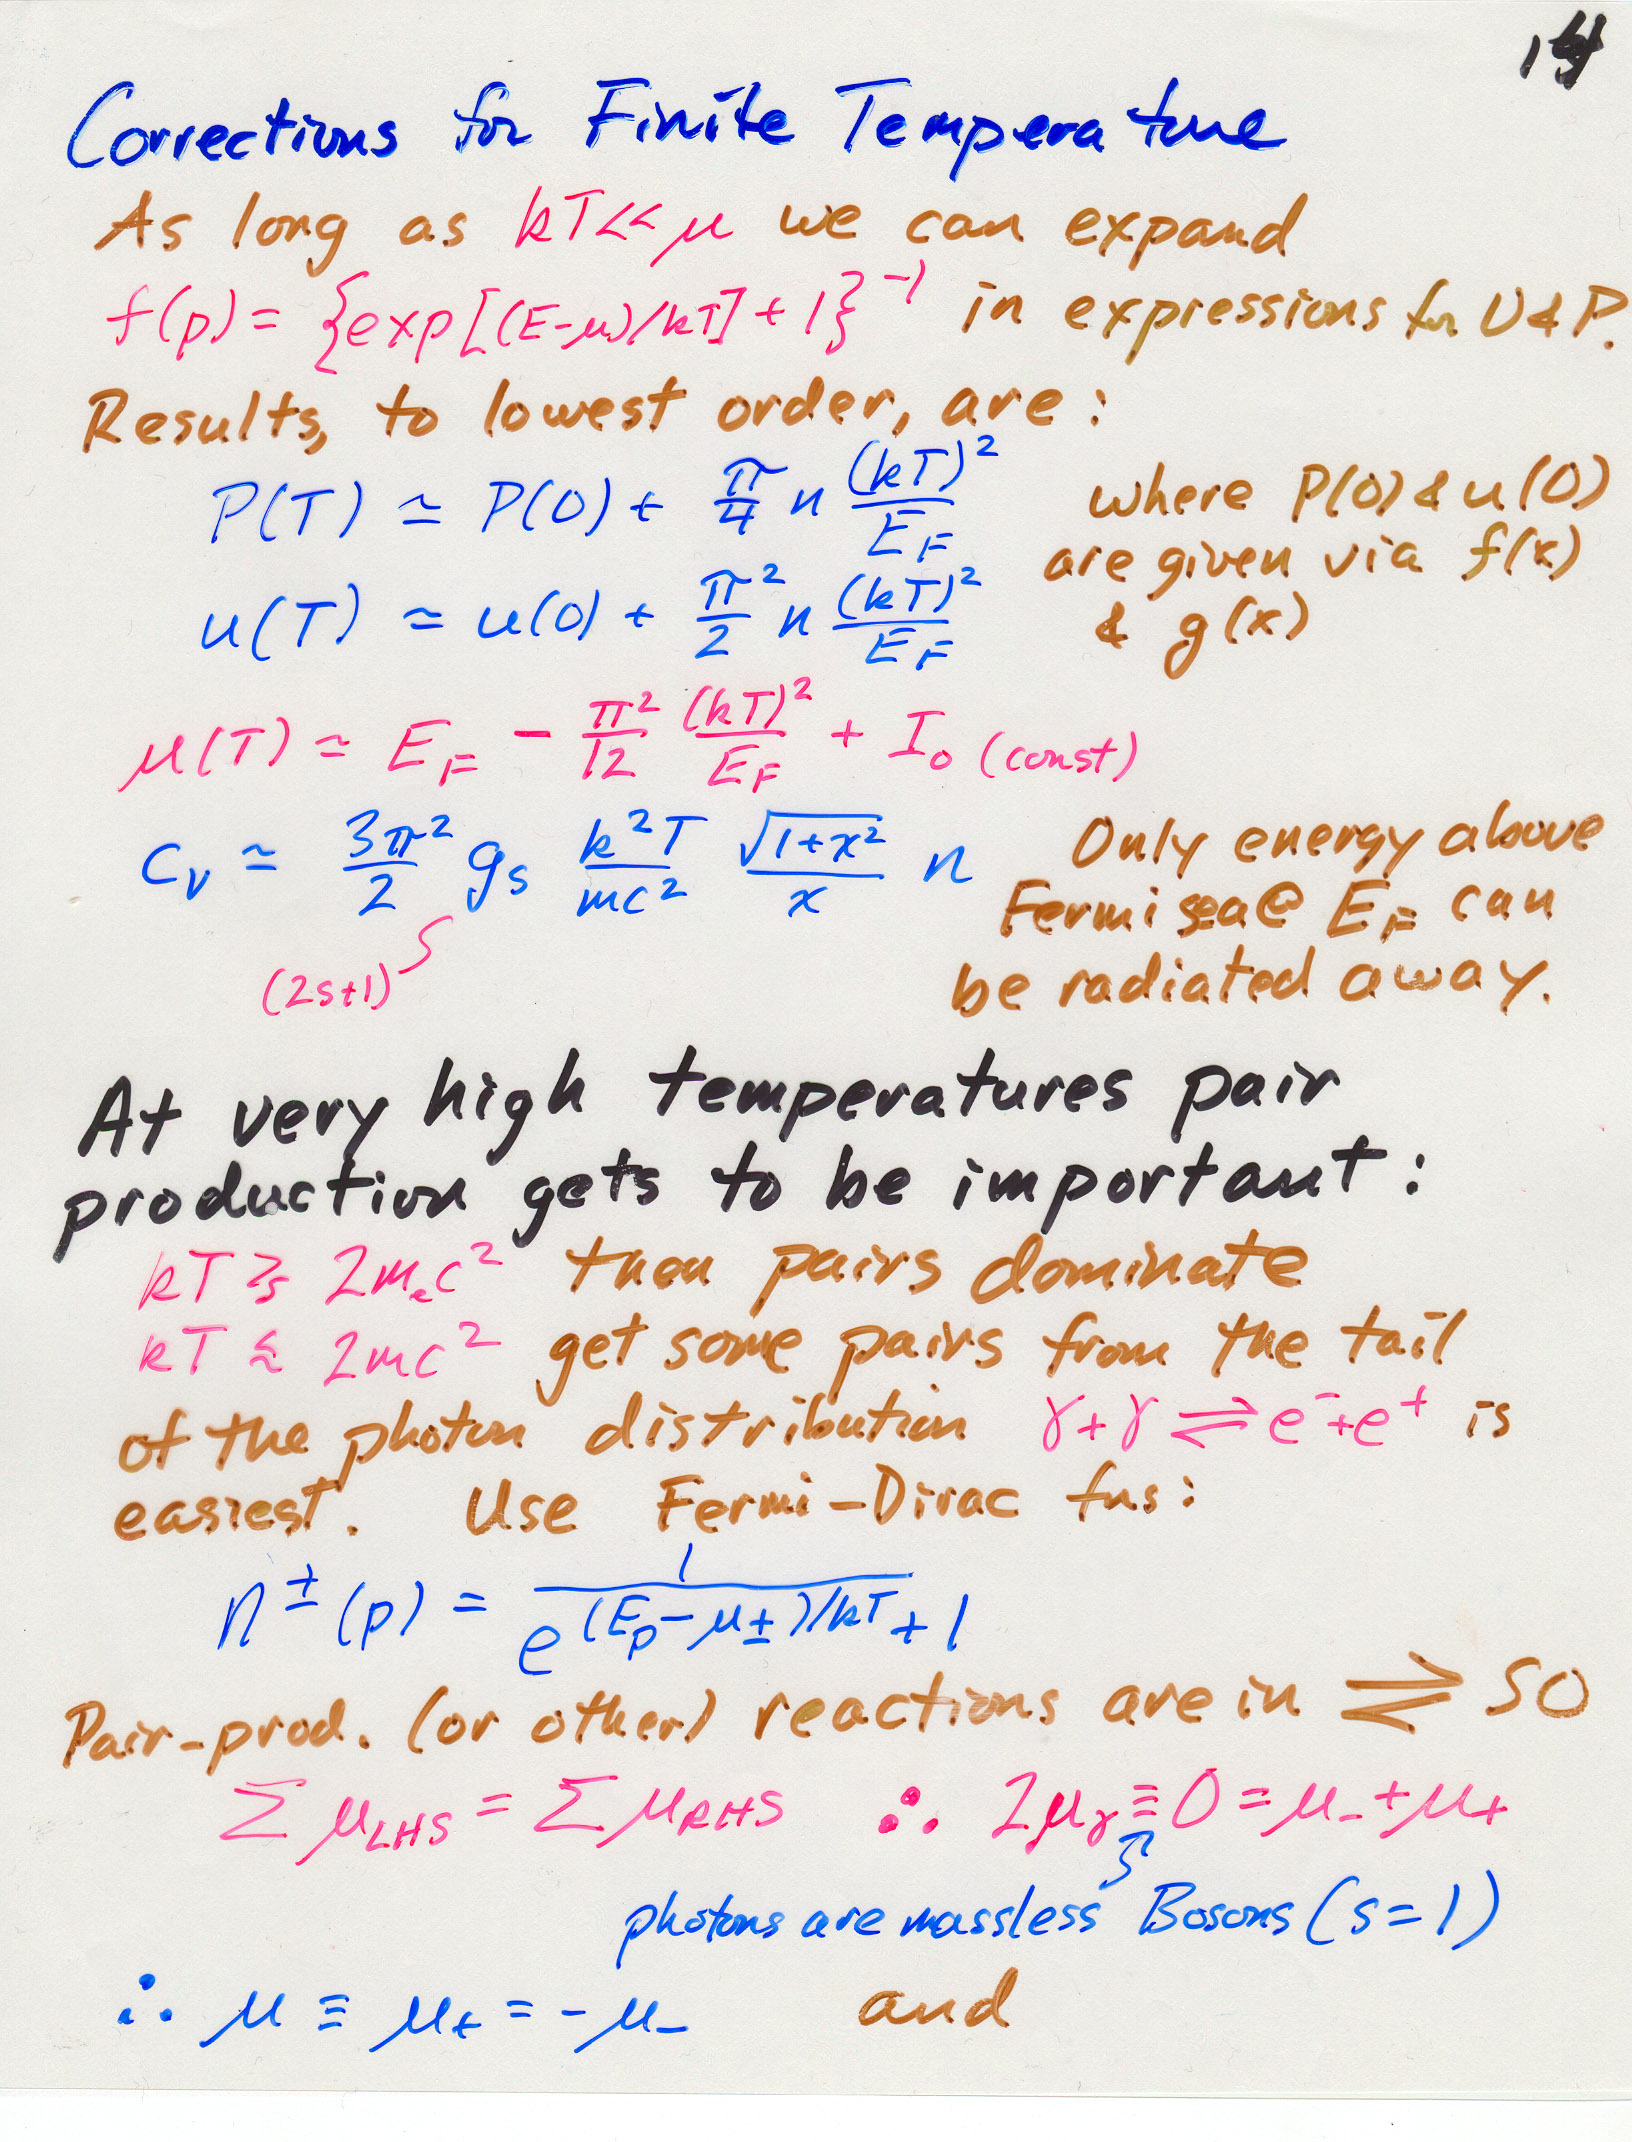 Corrections for Finite Temperature
As long as kT<<μ we can expand
f(p) = {exp[(E-μ)/kT] + 1}⁻¹ in expressions for U & P.
Results, to lowest order, are:
P(T) ≃ P(0) + π/4 n (kT)²/E_F where P(0) & u(0)
are given via f(x)
u(T) ≃ u(0) + π²/2 n (kT)²/E_F & g(x)
μ(T) ≃ E_F - π²/12 (kT)²/E_F + I₀ (const)
c_v ≃ 3π²/2 g_s k²T/mc² √(1+x²)/x n Only energy above
Fermi sea @ E_F can
(2s+1) be radiated away.
At very high temperatures pair
production gets to be important:
kT ≳ 2m_ec² then pairs dominate
kT ≲ 2mc² get some pairs from the tail
of the photon distribution γ+γ ⇌ e⁻+e⁺ is
easiest. Use Fermi-Dirac fns:
n^±(p) = 1/(e^((E_p-μ_±)/kT) + 1)
Pair-prod. (or other) reactions are in ⇌ so
Σ μ_LHS = Σ μ_RHS ∴ 2μ_γ ≡ 0 = μ_- + μ_+
photons are massless Bosons (s=1)
∴ μ ≡ μ_+ = -μ_- and